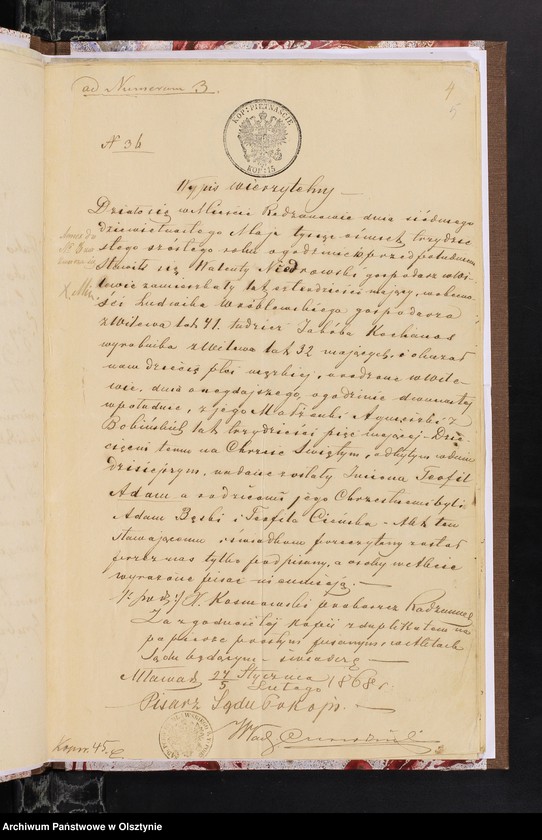 ad Numerum 3.
4
5
N 36
KOP: PIĘTNAŚCIE
KOP: 15
Wypis wierzytelny
Działo się w Mieście Radzanowie dnia siódmego
dziewiętnastego Maja tysiąc ośmset trzydzie
stego szóstego roku o godzinie przed południem
Stawił się Walenty Niedrowski gospodarz w Wi-
towie zamieszkały lat czterdzieści mający, w obecno
ści Ludwika Wróblewskiego gospodarza
z Witowa lat 41. tudzież Jakóba Kochanas
wyrobnika z Witowa lat 32 mających, i okazał
nam dziecię płci męzkiej, urodzone w Wito-
wie, dnia onegdajszego, o godzinie dwunastej
w południe, z jego Małżonki Agnieszki z
Bobińskich lat trzydzieści pięć mającej. Dzie
cięciu temu na Chrzcie Świętym, odbytym w dniu
dzisiejszym, nadane zostały Imiona Teofil
Adam a rodzicami jego Chrzestnemi byli
Adam Bęski i Teofila Cicińska. Akt ten
stawającemu i świadkom przeczytany został
przez nas tylko podpisany, a osoby w akcie
wyrażone pisać nie umieją.
N. Kosmowski proboszcz Radzanows
Za zgodność tej kopii z duplikatem na
papierze prostym pisanym, w aktach
Sądu będącym - świadczę
Mława d. 24/5 Stycznia/Lutego 1868 r.
Pisarz Sądu Pokoju.
Kopw. 45
Archiwum Państwowe w Olsztynie